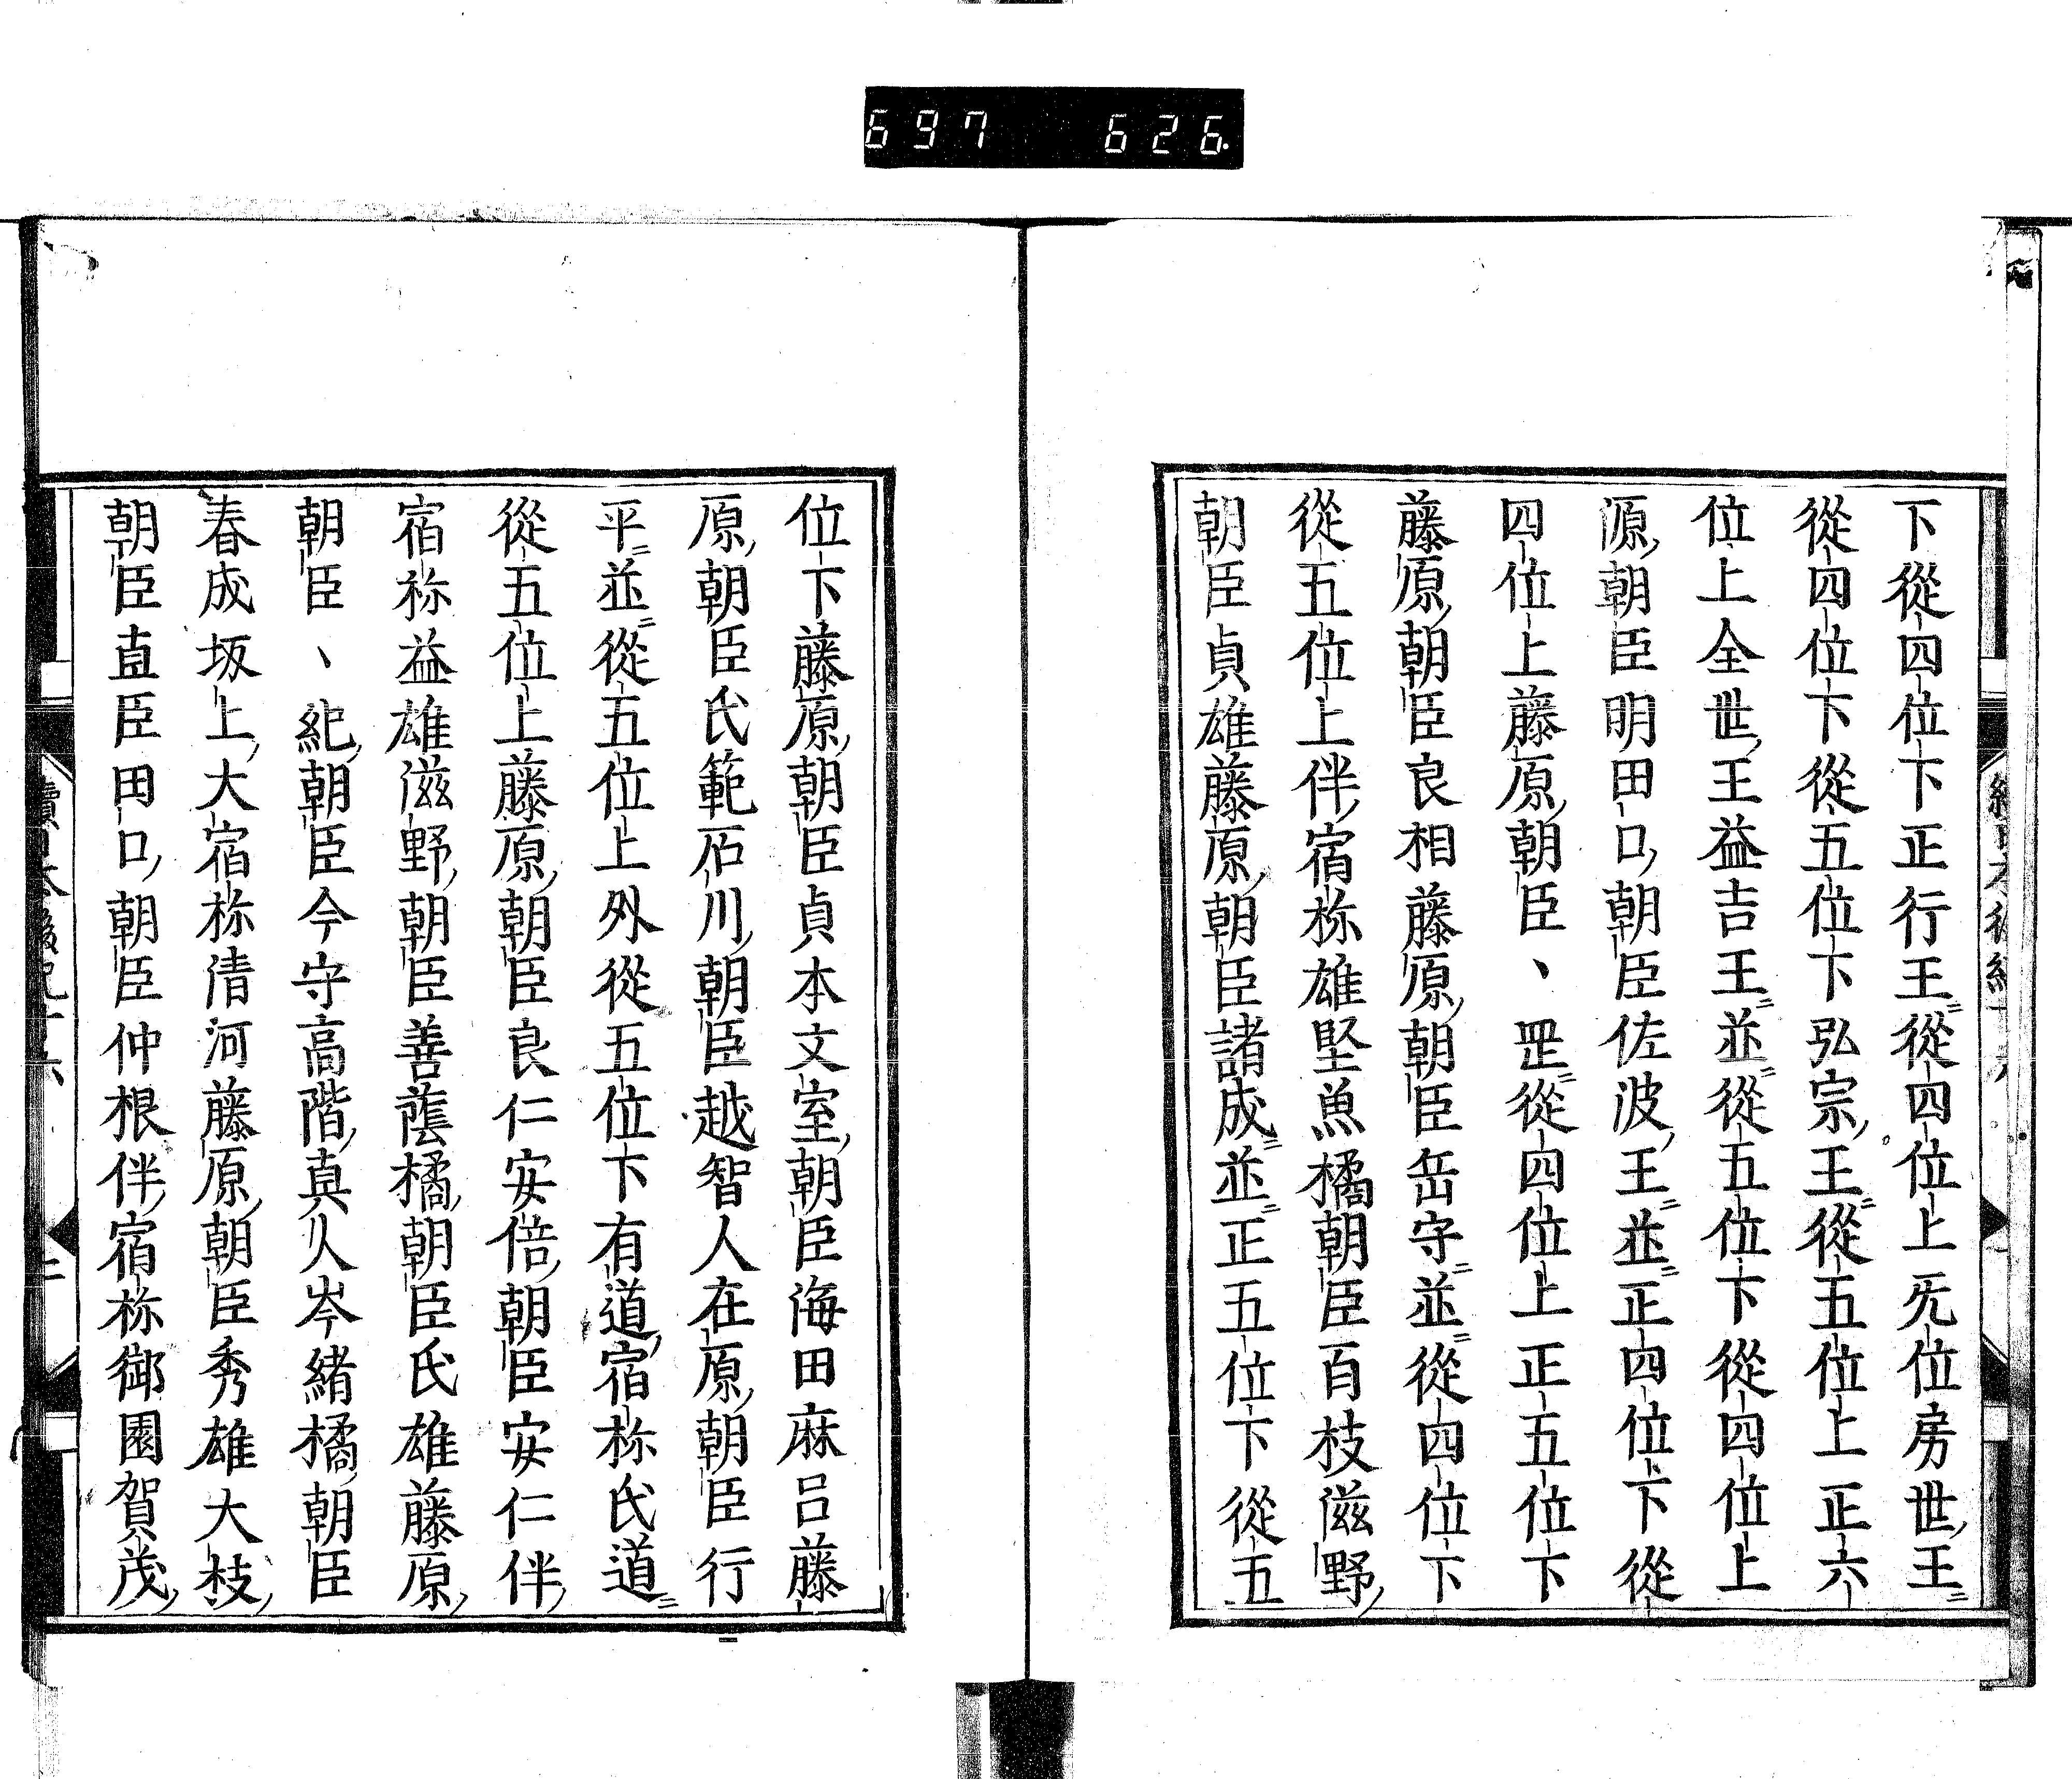 697 626
下從四位下正行王從四位上无位房世王
從四位下從五位下弘宗王從五位上正六
位上全世王益吉王並從五位下從四位上
源朝臣明田口朝臣佐波王並正四位下從
四位上藤原朝臣、㞷從四位上正五位下
藤原朝臣良相藤原朝臣岳守並從四位下
從五位上伴宿祢雄堅魚橘朝臣百枝滋野
朝臣貞雄藤原朝臣諸成並正五位下從五
位下藤原朝臣貞本文室朝臣海田麻呂藤
原朝臣氏範石川朝臣越智人在原朝臣行
平並從五位上外從五位下有道宿祢氏道
從五位上藤原朝臣良仁安倍朝臣安仁伴
宿祢益雄滋野朝臣善蔭橘朝臣氏雄藤原
朝臣、紀朝臣今守高階真人岑緒橘朝臣
春成坂上大宿祢清河藤原朝臣秀雄大枝
朝臣直臣田口朝臣仲根伴宿祢御園賀茂